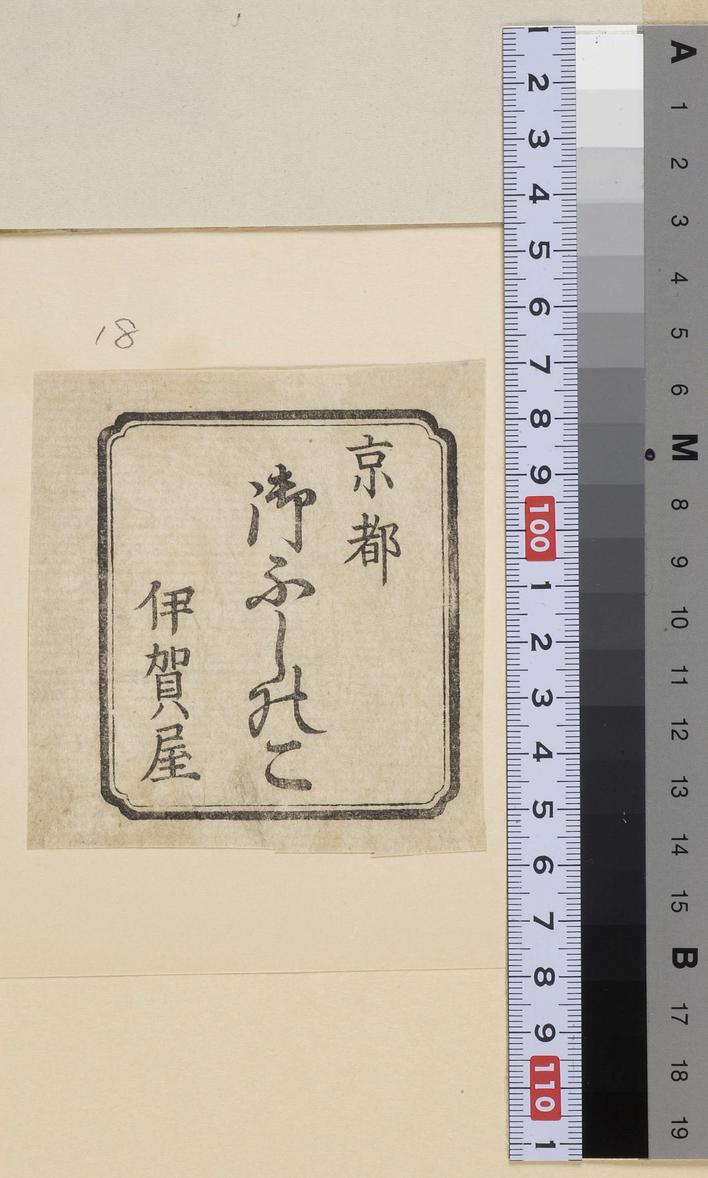 18
京都
御ふしのこ
伊賀屋
1
2
3
4
5
6
7
8
9
100
1
2
3
4
5
6
7
8
9
110
1
A
1
2
3
4
5
6
M
8
9
10
11
12
13
14
15
B
17
18
19